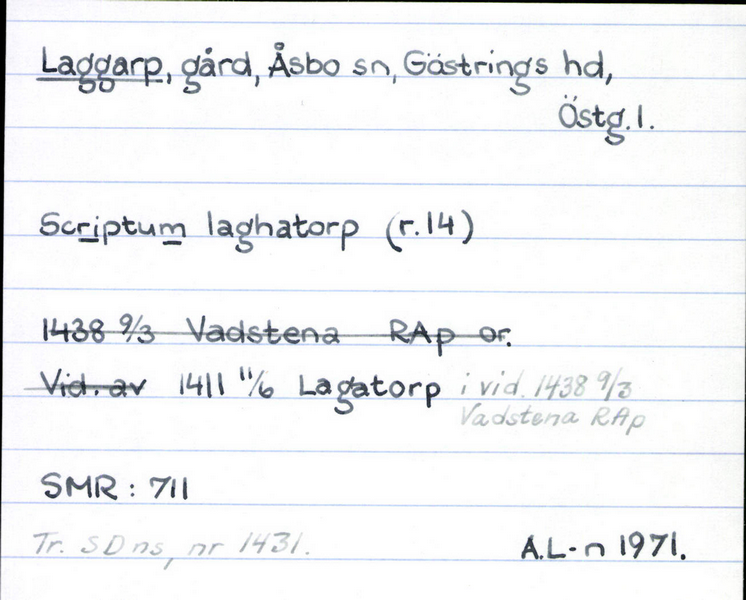 Laggarp, gård, Åsbo sn, Göstrings hd,
Östg. l.
Scriptum laghatorp (r. 14)
1438 9/3 Vadstena RAp or.
Vid. av 1411 11/6 Lagatorp i vid. 1438 9/3
Vadstena RAp
SMR : 711
Tr. SD ns, nr 1431.
A.L-n 1971.